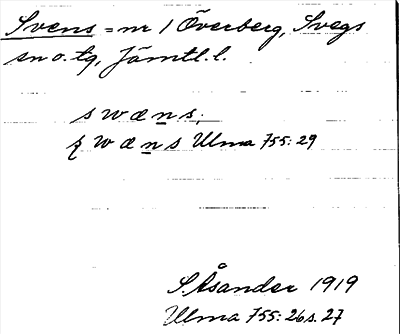 Svens = nr 1 Överberg, Svegs
sn o. tg, Jämtl. l.
swæns;
ʂwæns Ulma 755:29
S. Åsander 1919
Ulma 755:26 s. 27